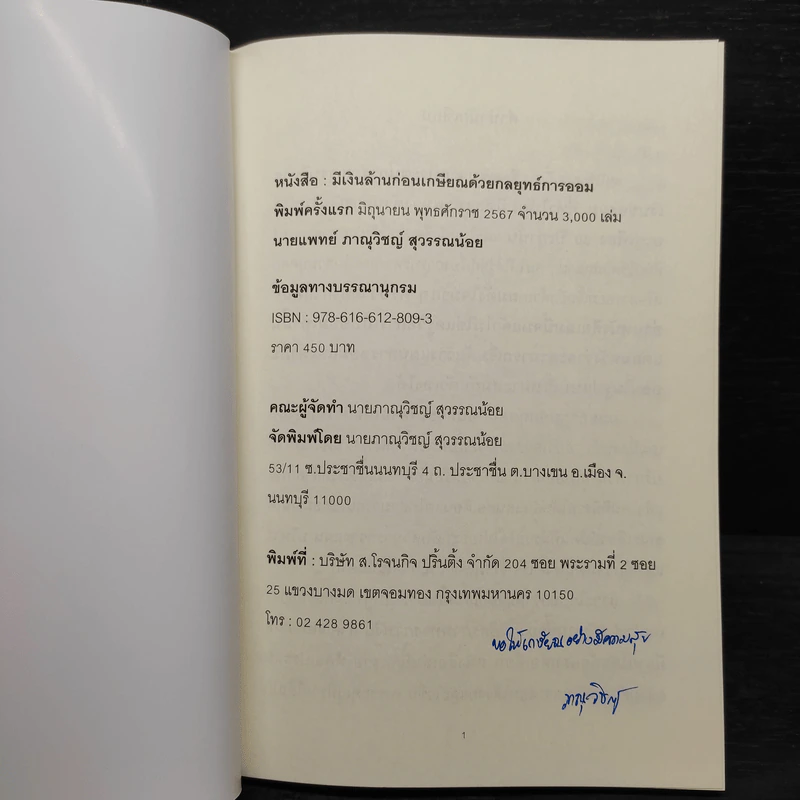 หนังสือ : มีเงินล้านก่อนเกษียณด้วยกลยุทธ์การออม
พิมพ์ครั้งแรก มิถุนายน พุทธศักราช 2567 จำนวน 3,000 เล่ม
นายแพทย์ ภาณุวิชญ์ สุวรรณน้อย
ข้อมูลทางบรรณานุกรม
ISBN : 978-616-612-809-3
ราคา 450 บาท
คณะผู้จัดทำ นายภาณุวิชญ์ สุวรรณน้อย
จัดพิมพ์โดย นายภาณุวิชญ์ สุวรรณน้อย
53/11 ซ.ประชาชื่นนนทบุรี 4 ถ. ประชาชื่น ต.บางเขน อ.เมือง จ.
นนทบุรี 11000
พิมพ์ที่ : บริษัท ส.โรจนกิจ ปริ้นติ้ง จำกัด 204 ซอย พระรามที่ 2 ซอย
25 แขวงบางมด เขตจอมทอง กรุงเทพมหานคร 10150
โทร : 02 428 9861
ขอให้เกษียณอย่างมีความสุข
ภาณุวิชญ์
1